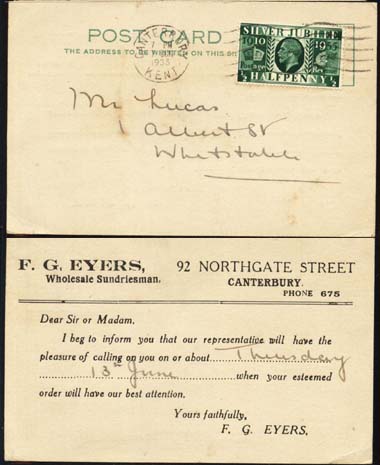 POST CARD
THE ADDRESS TO BE WRITTEN ON THIS
CANTERBURY
1935
KENT
SILVER JUBILEE
1910 1935
Postage Rev
½ HALFPENNY ½
Mr Lucas
1 Albert St
Whitstable
F. G. EYERS,
Wholesale Sundriesman.
92 NORTHGATE STREET
CANTERBURY.
PHONE 675
Dear Sir or Madam,
I beg to inform you that our representative will have the
pleasure of calling you on or about Thursday
13th June when your esteemed
order will have our best attention.
Yours faithfully,
F. G. EYERS.